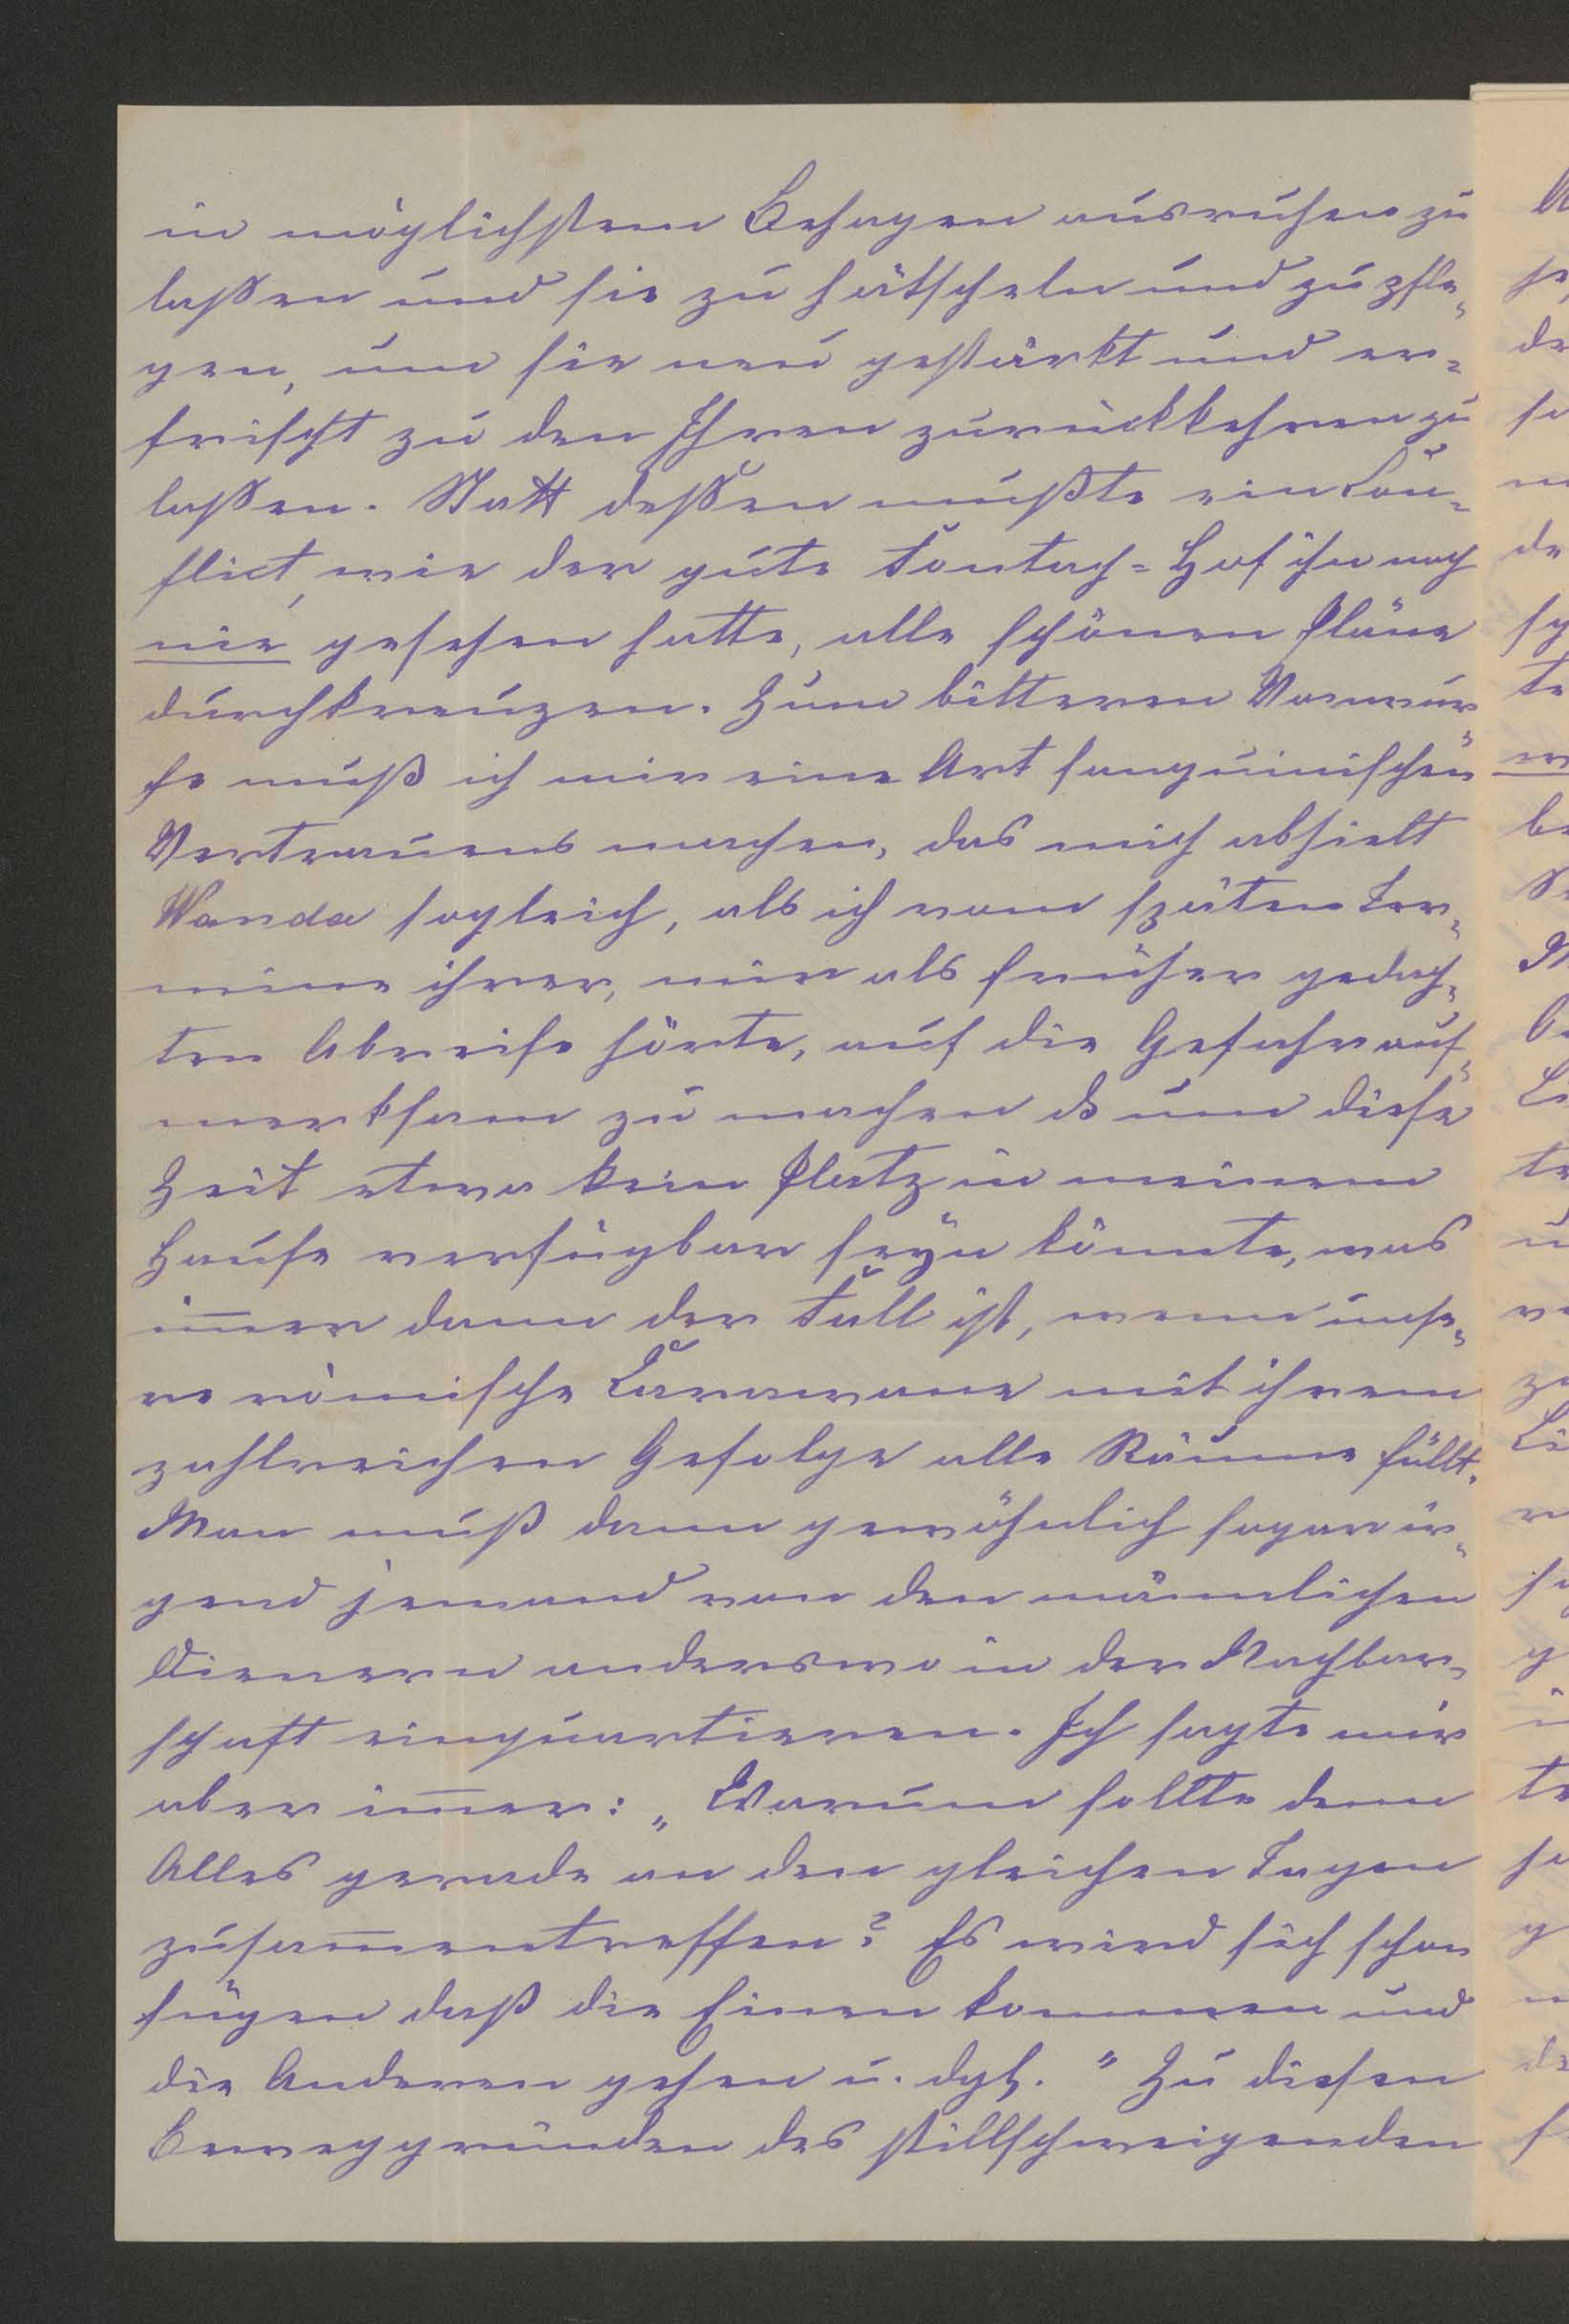 in möglichstem Behagen ausruhen zu
laßen und sie zu hätscheln und zu pfle-
gen, um sie neu gestärkt und er-
frischt zu den Ihren zurückkehren zu
laßen. Statt deßen mußte ein Con-
flict, wie der gute Tontach-Hof ihn noch
nie gesehen hatte, alle schönen Pläne
durchkreuzen. Zum bitteren Vorwur-
fe muß ich mir eine Art sanguinischen
Vertrauens machen, das mich abhielt
Wanda sogleich, als ich vom späten Ter-
mine ihrer, mir als früher gedach-
ten Abreise hörte, auf die Gefahr auf-
merksam zu machen ob um diese
Zeit etwa kein Platz in meinem
Hause verfügbar seyn könnte, was
im̅er dann der Fall ist, wenn unse-
re römische Carawane mit ihrem
zahlreichen Gefolge alle Räume füllt.
Man muß dann gewöhnlich sogar ir-
gend jemand von den männlichen
Dienern anderswo in der Nachbar-
schaft einquartieren. Ich sagte mir
aber im̅er: „Warum sollte denn
Alles gerade an den gleichen Tagen
zusam̅entreffen? Es wird sich schon
fügen daß die Einen kommen und
die Anderen gehen u. dgl." Zu diesen
Beweggründen des stillschweigenden